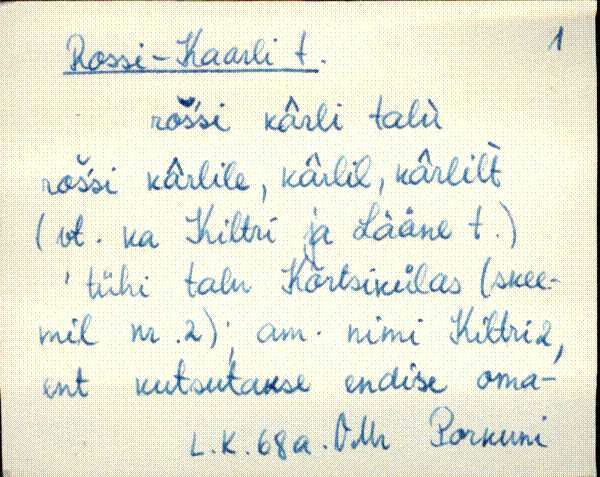 Rossi-Kaarli t. 1
rošśi kârli talù
rošśi kârlile, kârlil, kârlilt̀
(vt. ka Kiltri ja Lääne t.)
tühi talu Kõrtsikülas (skee-
mil nr. 2); am. nimi Kiltri 2,
ent kutsutakse endise oma-
L.K. 68 a. VMr Porkuni